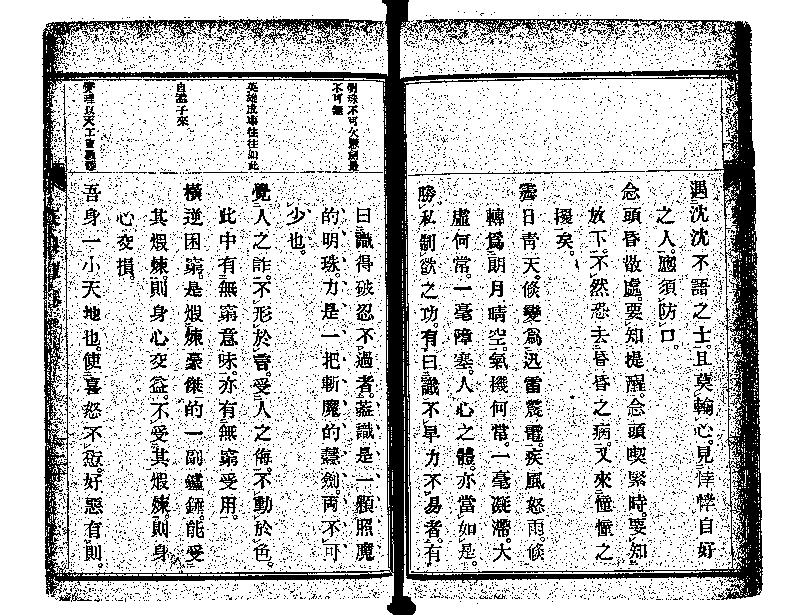 遇沈沈不語之士。且莫輸心。見悻悻自好
之人。應須防口。
念頭昏散處。要知提醒。念頭喫緊時。要知
放下。不然恐去昏昏之病。又來憧憧之
擾矣。
霽日青天。倐變為迅雷震電。疾風怒雨。倐
轉為朗月晴空。氣機何常。一毫凝滯。太
虛何常。一毫障塞。人心之體。亦當如是。
勝私制欲之功。有曰識不早力不易者。有
曰識得破忍不過者。蓋識是一顆照魔
的明珠。力是一把斬魔的慧劍。兩不可
少也。
覺人之詐。不形於言。受人之侮。不動於色。
此中有無窮意味。亦有無窮受用。
橫逆困窮。是煅煉豪傑的一副鑪錘。能受
其煅煉則身心交益。不受其煅煉則身
心交損。
吾身一小天地也。使喜怒不愆。好惡有則。
明珠不可欠慧劍最
不可無
英雄成事往往如此
自孟子來